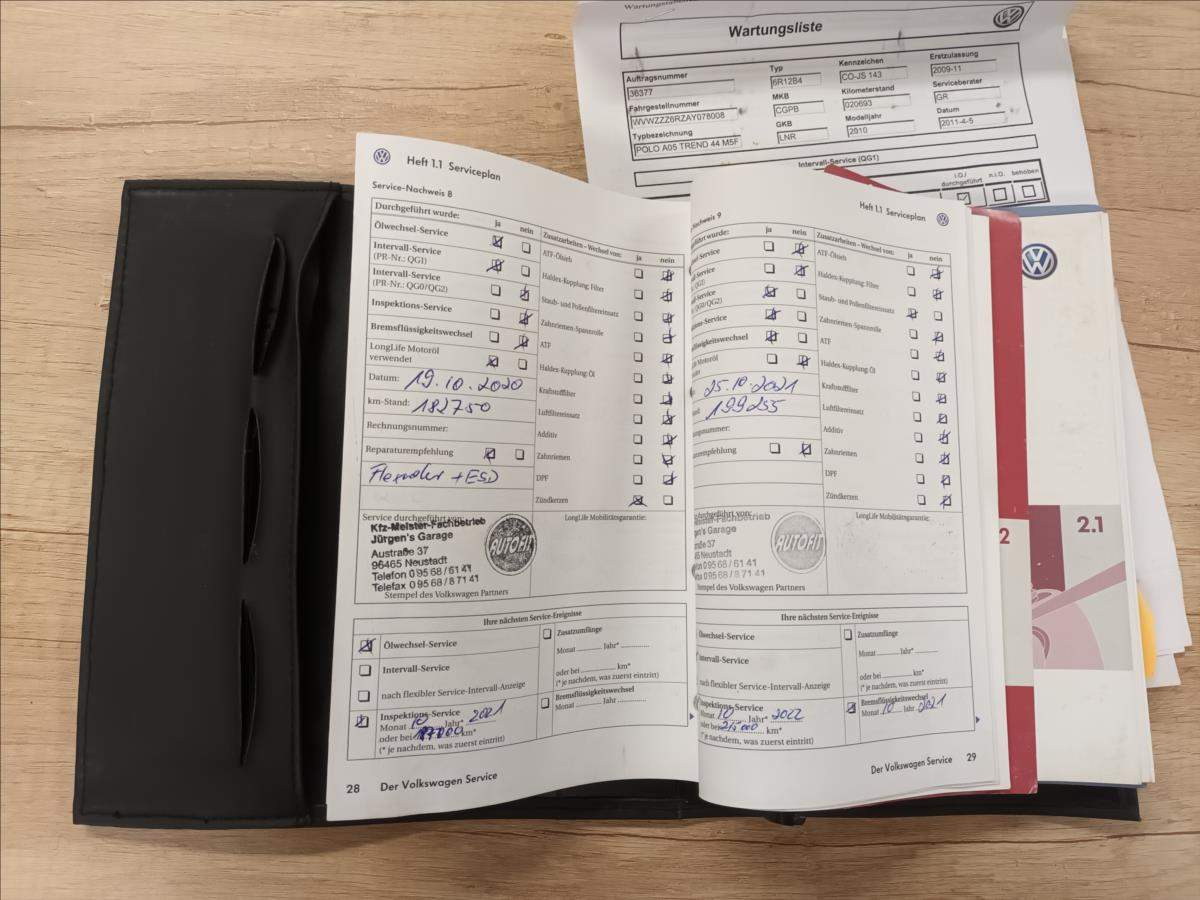 Wartungsliste
Auftragsnummer
36377
Typ
6R12B4
Kennzeichen
CO-JS 143
Erstzulassung
2009-11
Fahrgestellnummer
WVWZZZ6RZAY078008
MKB
CGPB
Kilometerstand
020693
Serviceberater
GR
Typbezeichnung
POLO A05 TREND 44 M5F
GKB
LNR
Modelljahr
2010
Datum
2011-4-5
Intervall-Service (QG1)
i.O./ durchgeführt n.i.O. behoben
Heft 1.1 Serviceplan
Service-Nachweis 8
Durchgeführt wurde: ja nein
Ölwechsel-Service
Intervall-Service
(PR-Nr.: QG1)
Intervall-Service
(PR-Nr.: QG0/QG2)
Inspektions-Service
Bremsflüssigkeitswechsel
LongLife Motoröl
verwendet
Datum: 19.10.2020
km-Stand: 182750
Rechnungsnummer:
Reparaturempfehlung
+ESD
Zusatzarbeiten – Wechsel von: ja nein
ATF-Ölsieb
Haldex-Kupplung: Filter
Staub- und Pollenfiltereinsatz
Zahnriemen-Spannrolle
ATF
Haldex-Kupplung: Öl
Kraftstofffilter
Luftfiltereinsatz
Additiv
Zahnriemen
DPF
Zündkerzen
Service durchgeführt von:
Kfz-Meister-Fachbetrieb
Jürgen's Garage
Austraße 37
96465 Neustadt
Telefon 0 95 68 / 61 41
Telefax 0 95 68 / 8 71 41
AUTOFIT
Stempel des Volkswagen Partners
LongLife Mobilitätsgarantie:
Ihre nächsten Service-Ereignisse
Ölwechsel-Service
Intervall-Service
nach flexibler Service-Intervall-Anzeige
Inspektions-Service
Monat 10 Jahr* 2021
oder bei km*
(* je nachdem, was zuerst eintritt)
Zusatzumfänge
Monat Jahr*
oder bei km*
(* je nachdem, was zuerst eintritt)
Bremsflüssigkeitswechsel
Monat Jahr
28 Der Volkswagen Service
Heft 1.1 Serviceplan
Nachweis 9
ja nein
25.10.2021
199255
Zusatzarbeiten – Wechsel von: ja nein
ATF-Ölsieb
Haldex-Kupplung: Filter
Staub- und Pollenfiltereinsatz
Zahnriemen-Spannrolle
ATF
Haldex-Kupplung: Öl
Kraftstofffilter
Luftfiltereinsatz
Additiv
Zahnriemen
DPF
Zündkerzen
AUTOFIT
Stempel des Volkswagen Partners
LongLife Mobilitätsgarantie:
Ihre nächsten Service-Ereignisse
Ölwechsel-Service
Intervall-Service
nach flexibler Service-Intervall-Anzeige
Inspektions-Service
Monat 10 Jahr* 2022
oder bei km*
(* je nachdem, was zuerst eintritt)
Zusatzumfänge
Monat Jahr*
oder bei km*
(* je nachdem, was zuerst eintritt)
Bremsflüssigkeitswechsel
Monat 10 Jahr 2021
Der Volkswagen Service 29
2
2.1